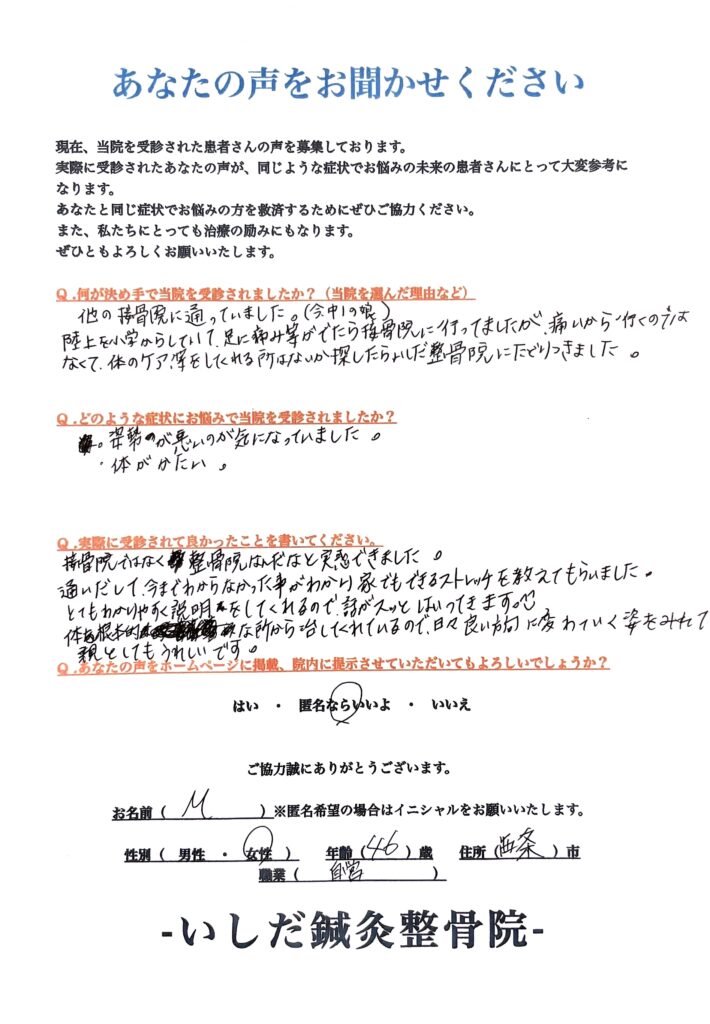 あなたの声をお聞かせください
現在、当院を受診された患者さんの声を募集しております。
実際に受診されたあなたの声が、同じような症状でお悩みの未来の患者さんにとって大変参考に
なります。
あなたと同じ症状でお悩みの方を救済するためにぜひご協力ください。
また、私たちにとっても治療の励みにもなります。
ぜひともよろしくお願いいたします。
Q.何が決め手で当院を受診されましたか?(当院を選んだ理由など)
他の接骨院に通っていました。(今中1の娘)
陸上を小学からしていて、足に痛み等がでたら接骨院に行ってましたが、痛いから行くのでは
なくて、体のケア等をしてくれる所はないか探したらいしだ整骨院にたどりつきました。
Q.どのような症状にお悩みで当院を受診されましたか?
。姿勢が悪いのが気になっていました。
・体がかたい。
Q.実際に受診されて良かったことを書いてください。
接骨院ではなく整骨院なんだなと実感できました。
通いだして、今までわからなかった事がわかり家でもできるストレッチを教えてもらいました。
とてもわかりやすく説明をしてくれるので、話がスッとはいってきます。
体も根本的な所から治してくれているので、日々良い方向に変わていく姿をみれて
親としてもうれしいです。
Q.あなたの声をホームページに掲載、院内に提示させていただいてもよろしいでしょうか?
はい ・ 匿名ならいいよ ・ いいえ
ご協力誠にありがとうございます。
お名前( M )※匿名希望の場合はイニシャルをお願いいたします。
性別( 男性 ・ 女性 ) 年齢(46)歳 住所(西条)市
職業( 自営 )
-いしだ鍼灸整骨院-